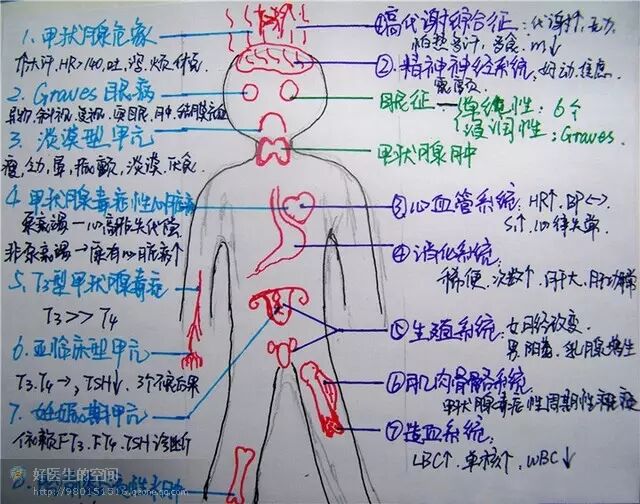 1. 甲状腺危象
大汗, HR>140, 吐, 泻,
2. Graves眼病
3. 淡漠型甲亢
淡漠, 厌食
4. 甲状腺毒症性心脏病
5. T3型甲状腺毒症
T3>>T4
6. 亚临床型甲亢
T3.T4→, TSH↓. 3个不良后果
7. 妊娠期甲亢
依赖FT3. FT4. TSH诊断
①高代谢综合征: 代谢↑, 乏力,
怕热多汗, 多食. m↓
②精神神经系统: 好动. 焦虑.
眼征—单纯性: 6个
浸润性: Graves.
甲状腺肿
③心血管系统: HR↑, BP<->
S₁↑, 心律失常
④消化系统:
稀便, 次数↑, 肝大, 肝功异常
⑤生殖系统: 女月经改变.
男阳萎, 乳腺增生
⑥肌肉骨骼系统
甲状腺毒症性周期性瘫痪
⑦造血系统:
LBC↑, 单核↑, WBC↓
好医生的空间